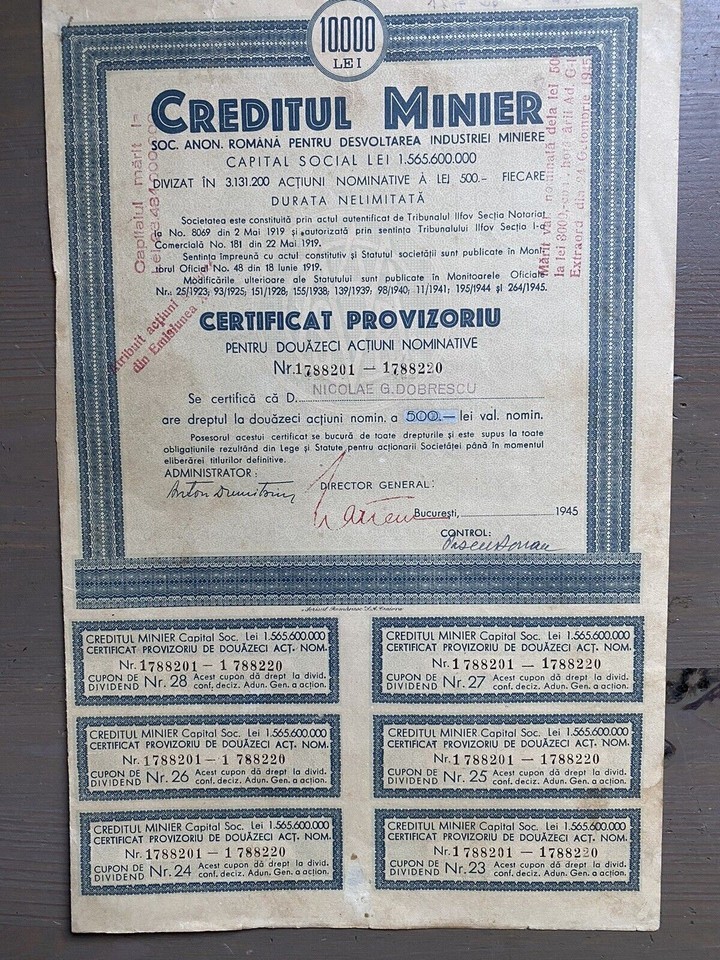 10.000
LEI
CREDITUL MINIER
SOC. ANON. ROMÂNĂ PENTRU DESVOLTAREA INDUSTRIEI MINIERE
CAPITAL SOCIAL LEI 1.565.600.000
DIVIZAT ÎN 3.131.200 ACȚIUNI NOMINATIVE Á LEJ 500.- FIECARE
DURATA NELIMITATĂ
Societatea este constituită prin actul autentificat de Tribunalul Ilfov Secția Notariat
No. 8069 din 2 Mai 1919 și autorizată prin sentința Tribunalului Ilfov Secția I-a
Comercială No. 181 din 22 Mai 1919.
Sentința împreună cu actul constitutiv și Statutul societății sunt publicate în Moni-
torul Oficial No. 48 din 18 Iunie 1919.
Modificările ulterioare ale Statutului sunt publicate în Monitoarele Oficiale
Nr.: 25/1923; 93/1925; 151/1928; 155/1938; 139/1939; 98/1940; 11/1941; 195/1944 și 264/1945.
Capitalul mărit l=
Mărit val. nominată dela lei 50
la lei 3000,- hotărîrii Ad. G-l
Extraord din 24 Octombrie 1945
tribuit acțiuni
din Emisiunea
CERTIFICAT PROVIZORIU
PENTRU DOUĂZECI ACȚIUNI NOMINATIVE
Nr. 1788201 — 1788220
Se certifică că D. NICOLAE G. DOBRESCU
are dreptul la douăzeci acțiuni nomin. a 500.— lei val. nomin.
Posesorul acestui certificat se bucură de toate drepturile și este supus la toate
obligațiunile rezultând din Lege și Statute pentru acționarii Societății până în momentul
eliberării titlurilor definitive.
ADMINISTRATOR:
DIRECTOR GENERAL:
București, 1945
CONTROL:
CREDITUL MINIER Capital Soc. Lei 1.565.600.000
CERTIFICAT PROVIZORIU DE DOUĂZECI ACȚ. NOM.
Nr. 1788201 — 1 788220
CUPON DE DIVIDEND Nr. 28 Acest cupon dă drept la divid.
conf. deciz. Adun. Gen. a acțion.
CREDITUL MINIER Capital Soc. Lei 1.565.600.000
CERTIFICAT PROVIZORIU DE DOUĂZECI ACȚ. NOM.
Nr. 1788201 — 1788220
CUPON DE DIVIDEND Nr. 27 Acest cupon dă drept la divid.
conf. deciz. Adun. Gen. a acțion.
CREDITUL MINIER Capital Soc. Lei 1.565.600.000
CERTIFICAT PROVIZORIU DE DOUĂZECI ACȚ. NOM.
Nr. 1788201 — 1 788220
CUPON DE DIVIDEND Nr. 26 Acest cupon dă drept la divid.
conf. deciz. Adun. Gen. a acțion.
CREDITUL MINIER Capital Soc. Lei 1.565.600.000
CERTIFICAT PROVIZORIU DE DOUĂZECI ACȚ. NOM.
Nr. 1788201 — 1788220
CUPON DE DIVIDEND Nr. 25 Acest cupon dă drept la divid.
conf. deciz. Adun. Gen. a acțion.
CREDITUL MINIER Capital Soc. Lei 1.565.600.000
CERTIFICAT PROVIZORIU DE DOUĂZECI ACȚ. NOM.
Nr. 1788201 — 1 788220
CUPON DE DIVIDEND Nr. 24 Acest cupon dă drept la divid.
conf. deciz. Adun. Gen. a acțion.
CREDITUL MINIER Capital Soc. Lei 1.565.600.000
CERTIFICAT PROVIZORIU DE DOUĂZECI ACȚ. NOM.
Nr. 1788201 — 1788220
CUPON DE DIVIDEND Nr. 23 Acest cupon dă drept la divid.
conf. deciz. Adun. Gen. a acțion.